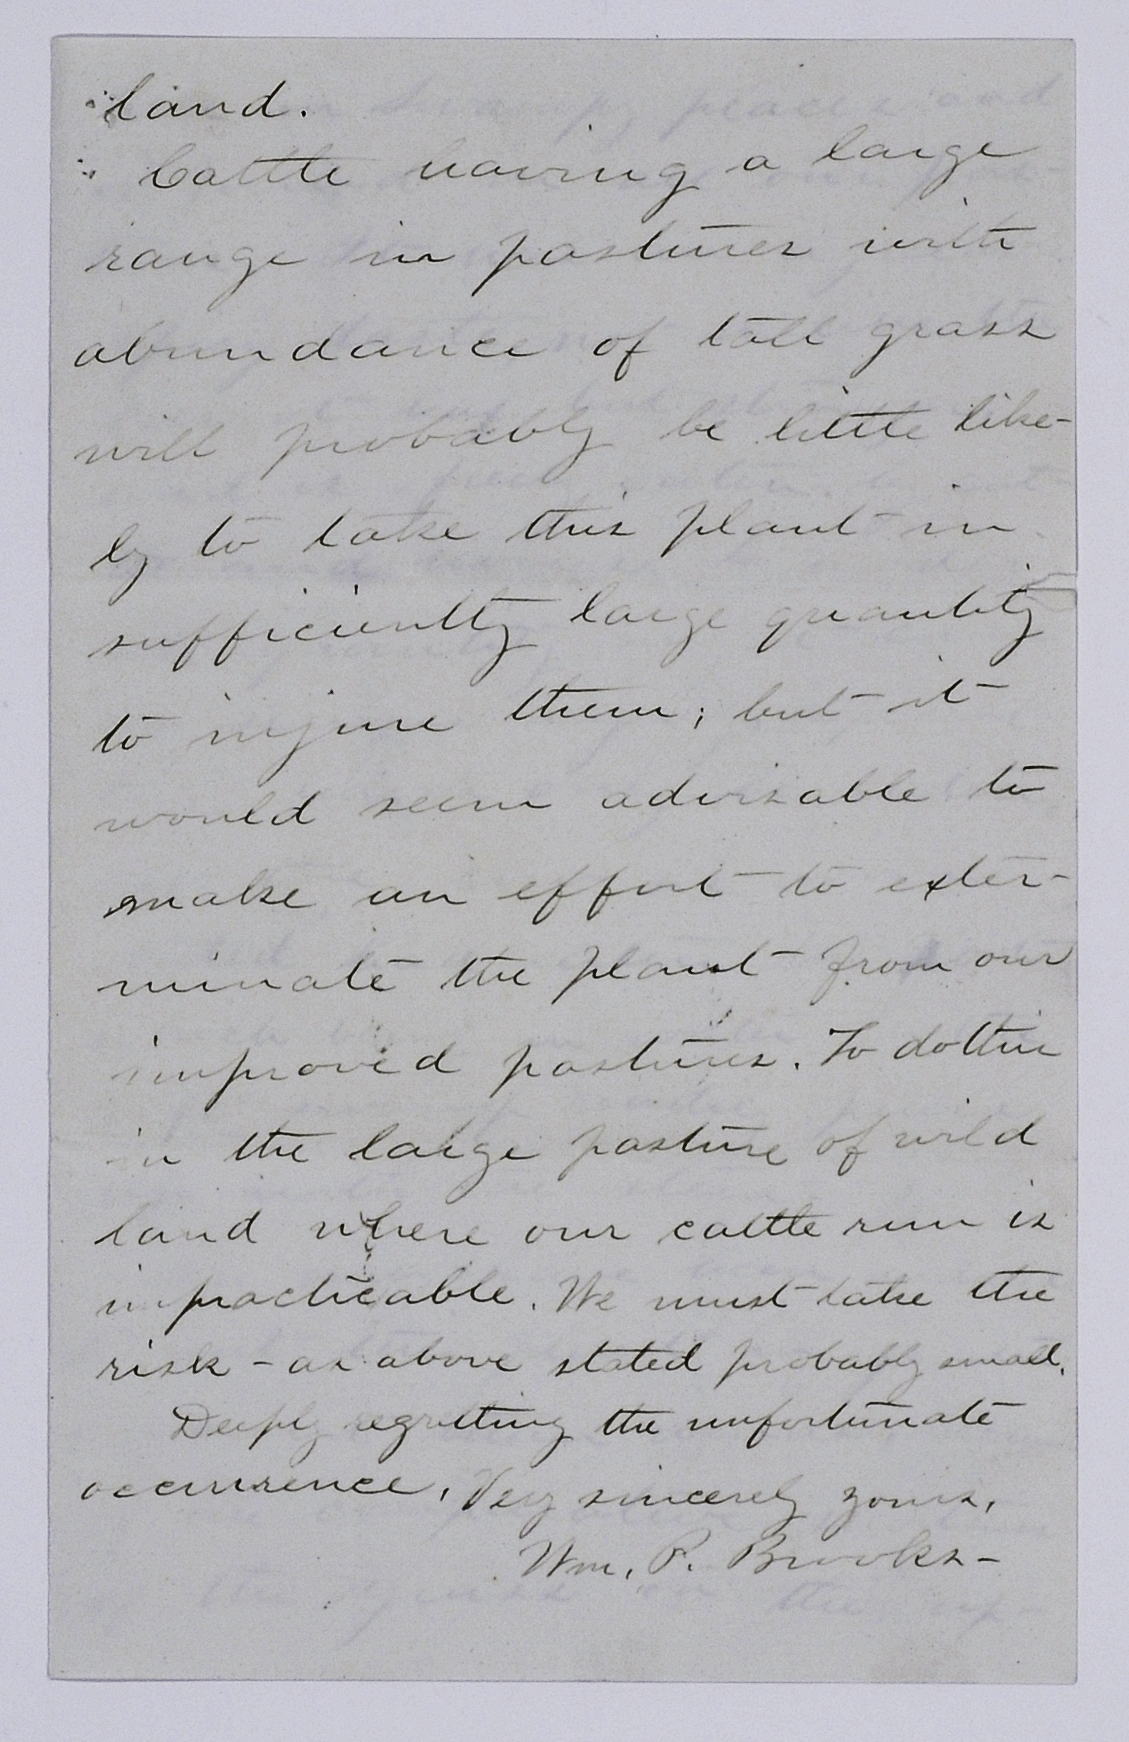 land.
Cattle having a large
range in pastures with
abundance of tall grass
will probably be little like-
ly to take this plant in
sufficiently large quantity
to injure them; but it
would seem advisable to
make an effort to exter-
minate the plant from our
improved pastures. To do this
in the large pasture of wild
land where our cattle run is
impracticable. We must take the
risk - as above stated probably small.
Deeply regretting the unfortunate
occurrence, Very sincerely yours,
Wm. P. Brooks-